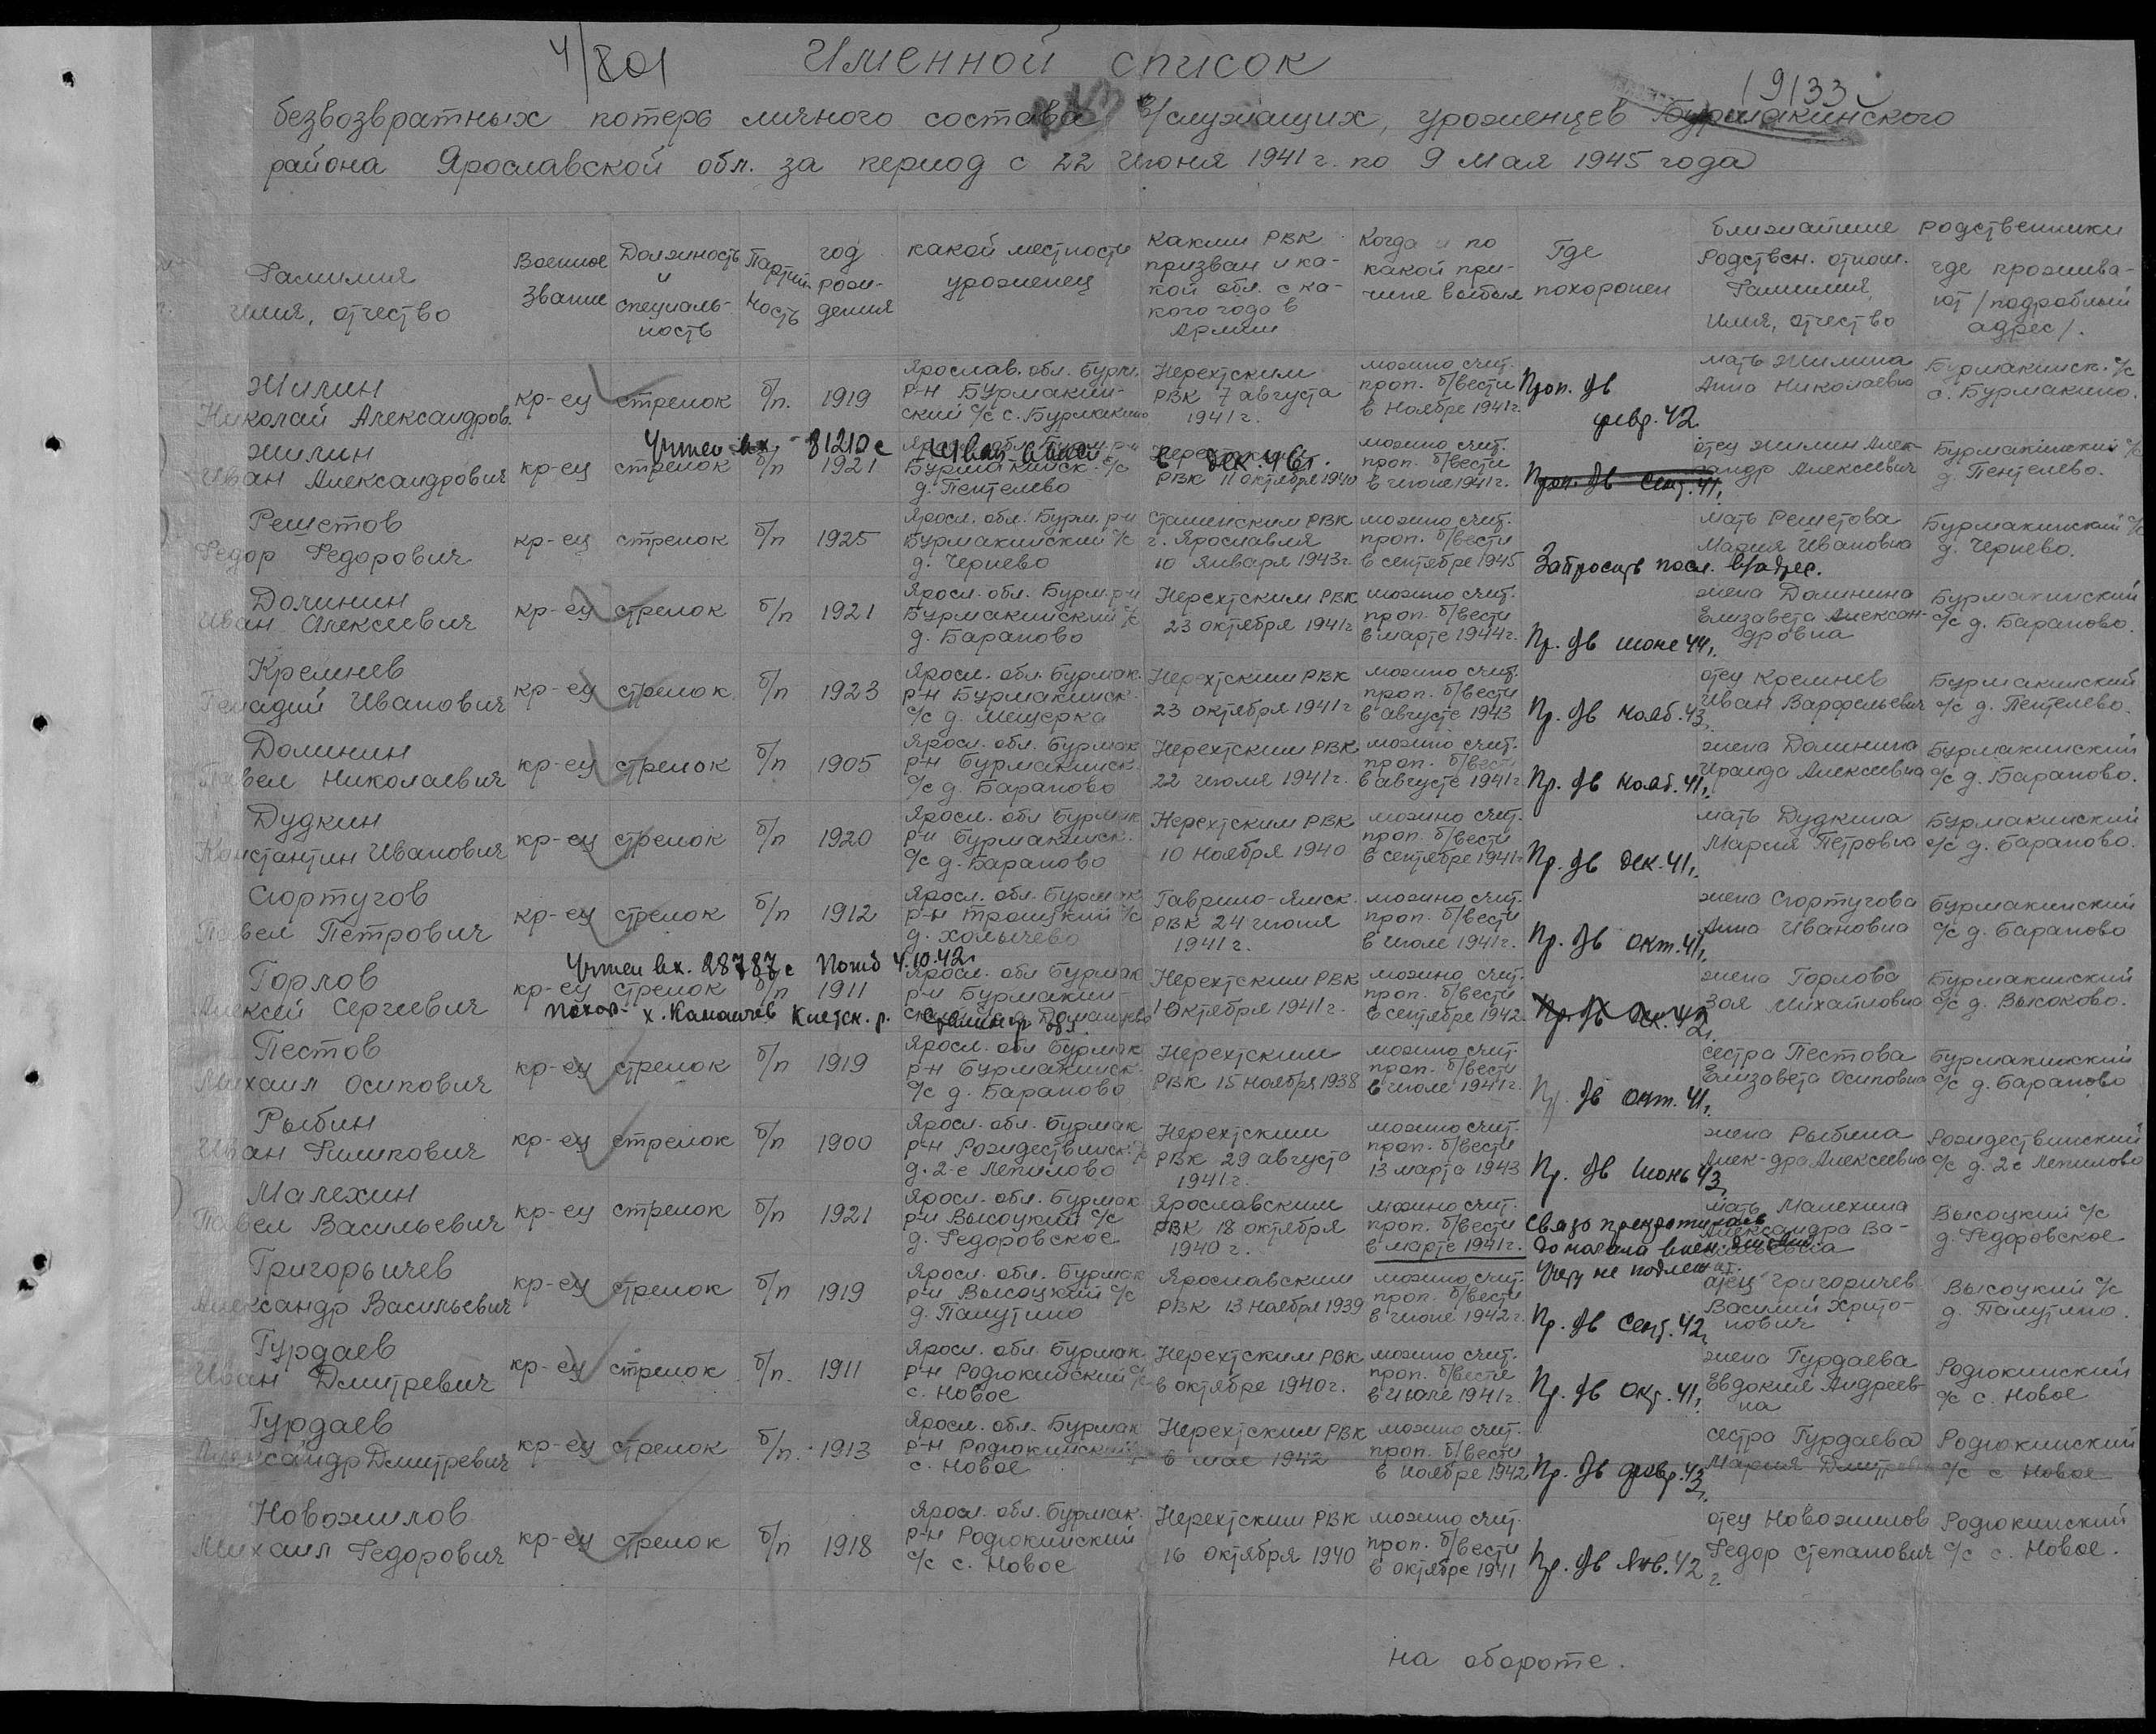 4/801
Именной список
19133с
безвозвратных потерь личного состава в/служащих, уроженцев Бурмакинского
района Ярославской обл. за период с 22 Июня 1941 г. по 9 Мая 1945 года
Фамилия имя, отчество
Военное звание
Должность и специальность
Партийность
год рождения
какой местности уроженец
Каким РВК призван и какой обл. с какого года в Армии
Когда и по какой причине выбыл
Где похоронен
ближайшие родственники
Родствен. отнош. Фамилия, Имя, отчество
где проживают /подробный адрес/.
Жилин Николай Александров. кр-ец стрелок б/п. 1919 Ярослав. обл. Бурм. р-н Бурмакинский с/с с. Бурмакино Нерехтским РВК 7 августа 1941 г. можно счит. проп. б/вести в Ноябре 1941 г. Проп. б/в февр. 42 мать Жилина Анна Николаевна Бурмакинск. с/с с. Бурмакино.
Учтен вх. 81210с в дек. 46 г.
Жилин Иван Александрович кр-ец стрелок б/п 1921 Бурмакинск. с/с д. Пентелево РВК 11 октября 1940 можно счит. проп. б/вести в июне 1941 г. Проп. б/в сент. 41 г. отец Жилин Александр Алексеевич Бурмакинский с/с д. Пентелево.
Решетов Федор Федорович кр-ец стрелок б/п 1925 Яросл. обл. Бурм. р-н Бурмакинский с/с д. Чернево Сталинским РВК г. Ярославля 10 Января 1943 г. можно счит. проп. б/вести в сентябре 1945 Запросить посл. в/адрес. мать Решетова Мария Ивановна Бурмакинский с/с д. Чернево.
Долинин Иван Алексеевич кр-ец стрелок б/п 1921 Яросл. обл. Бурм. р-н Бурмакинский с/с д. Бараново Нерехтским РВК 23 октября 1941 г. можно счит. проп. б/вести в марте 1944 г. Пр. б/в июне 44 г. жена Долинина Елизавета Александровна Бурмакинский с/с д. Бараново.
Кремнев Генадий Иванович кр-ец стрелок б/п 1923 Яросл. обл. Бурмак. р-н Бурмакинск. с/с д. Мещерка Нерехтским РВК 23 октября 1941 г. можно счит. проп. б/вести в августе 1943 Пр. б/в нояб. 43 г. отец Кремнев Иван Бурмакинский с/с д. Пентелево.
Долинин Павел Николаевич кр-ец стрелок б/п 1905 Яросл. обл. Бурмак р-н Бурмакинск. с/с д. Бараново Нерехтским РВК 22 июля 1941 г. можно счит. проп. б/вести в августе 1941 г. Пр. б/в нояб. 41 г. жена Долинина Ираида Алексеевна Бурмакинский с/с д. Бараново.
Дудкин Константин Иванович кр-ец стрелок б/п 1920 Яросл. обл Бурмак р-н Бурмакинск. с/с д. Бараново Нерехтским РВК 10 Ноября 1940 можно счит. проп. б/вести в сентябре 1941 г. Пр. б/в дек. 41 г. мать Дудкина Мария Петровна Бурмакинский с/с д. Бараново.
Сюртугов Павел Петрович кр-ец стрелок б/п 1912 Яросл. обл. Бурмак р-н Троицкий с/с д. Холычево Гаврило-Ямск. РВК 24 июня 1941 г. можно счит. проп. б/вести в июле 1941 г. Пр. б/в окт. 41 г. жена Сюртугова Анна Ивановна Бурмакинский с/с д. Бараново
Учтен вх. 28787с Погиб 4.10.42 г.
Горлов Алексей Сергеевич кр-ец стрелок б/п 1911 Яросл. обл Бурмак р-н Нерехтским РВК 1 Октября 1941 г. можно счит. проп. б/вести в сентябре 1942 Пр. б/в дек. 42 г. жена Горлова Зоя Михайловна Бурмакинский с/с д. Высоково.
похор- х. Камышев Клетск. р. Сталингр. обл.
Пестов Михаил Осипович кр-ец стрелок б/п 1919 Яросл. обл Бурмак р-н Бурмакинск. с/с д. Бараново Нерехтским РВК 15 Ноября 1938 можно счит. проп. б/вести в июле 1941 г. Пр. б/в окт. 41 г. сестра Пестова Елизавета Осиповна Бурмакинский с/с д. Бараново
Рыбин Иван Филипович кр-ец стрелок б/п 1900 Яросл. обл. Бурмак р-н Рождествинск. с/с д. 2-е Лепилово Нерехтским РВК 29 августа 1941 г. можно счит. проп. б/вести 13 марта 1943 Пр. б/в июнь 43 г. жена Рыбина Алек-дра Алексеевна Рождествинский с/с д. 2е Лепилово
Малехин Павел Васильевич кр-ец стрелок б/п 1921 Яросл. обл. Бурмак р-н Высоцкий с/с д. Федоровское Ярославским РВК 18 октября 1940 г. можно счит. проп. б/вести в марте 1941 г. Связь прекратилась до начала воен. действий. Учету не подлежит. мать Малехина Александра Васильевна Высоцкий с/с д. Федоровское
Григорьичев Александр Васильевич кр-ец стрелок б/п 1919 Яросл. обл. Бурмак р-н Высоцкий с/с д. Пашутино Ярославским РВК 13 Ноября 1939 можно счит. проп. б/вести в июне 1942 г. Пр. б/в сент. 42 г. отец Григоричев Василий Харитонович Высоцкий с/с д. Пашутино.
Гурдаев Иван Дмитревич кр-ец стрелок б/п. 1911 Яросл. обл. Бурмак р-н Родюкинский с/с с. Новое Нерехтским РВК в октябре 1940 г. можно счит. проп. б/вести в Июле 1941 г. Пр. б/в окт. 41 г. жена Гурдаева Евдокия Андреевна Родюкинский с/с с. Новое
Гурдаев Александр Дмитревич кр-ец стрелок б/п. 1913 Яросл. обл. Бурмак р-н Родюкинский с. Новое Нерехтским РВК в мае 1942 можно счит. проп. б/вести в Ноябре 1942 Пр. б/в февр. 43 г. сестра Гурдаева Мария Дмитревна Родюкинский с/с с Новое
Новожилов Михаил Федорович кр-ец стрелок б/п 1918 Яросл. обл. Бурмак. р-н Родюкинский с/с с. Новое Нерехтским РВК 16 октября 1940 можно счит. проп. б/вести в октябре 1941 Пр. б/в янв. 42 г. отец Новожилов Федор Степанович Родюкинский с/с с. Новое.
на обороте.